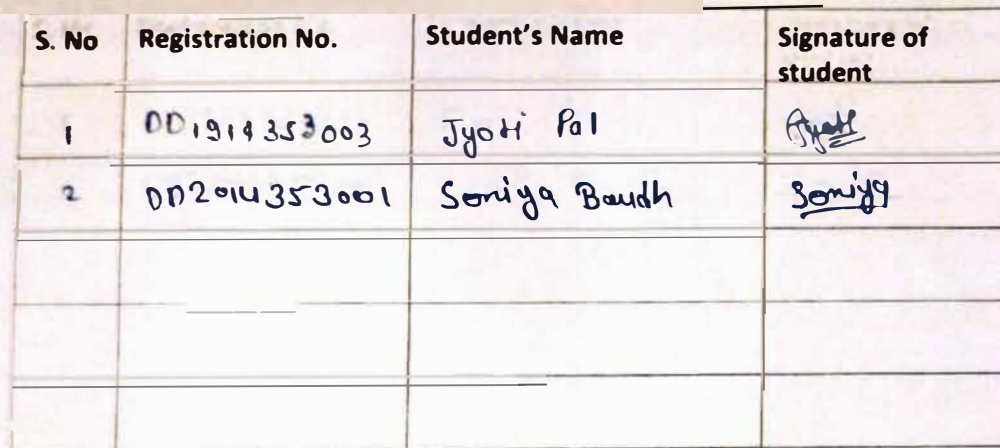 S. No Registration No. Student's Name Signature of
student
1 DD1914353003 Jyoti Pal Jyoti
2 DD2014353001 Soniya Baudh Soniya